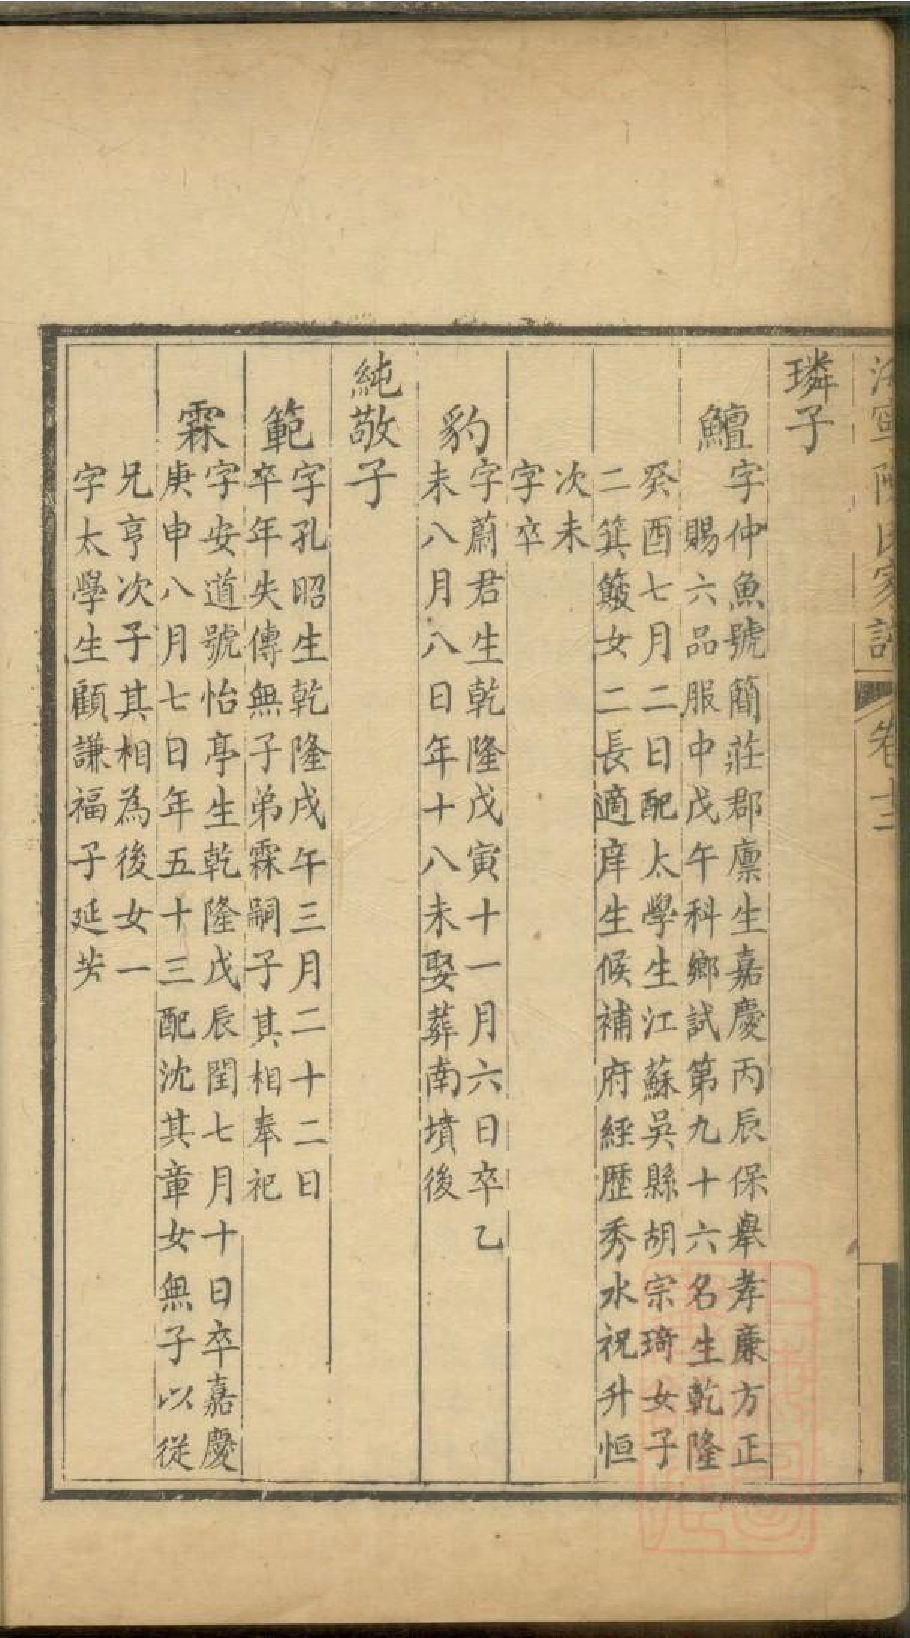 海寧陳氏家譜 卷十三
璘子
鱣
字仲魚號簡莊郡廪生嘉慶丙辰保舉孝廉方正
賜六品服中戊午科鄉試第九十六名生乾隆
癸酉七月二日配太學生江蘇吳縣胡宗琦女子
二箕簸女二長適庠生候補府經歷秀水祝升恒
次未
字卒
豹
字蔚君生乾隆戊寅十一月六日卒乙
未八月八日年十八未娶葬南墳後
純敬子
範
字孔昭生乾隆戊午三月二十二日
卒年失傳無子弟霖嗣子其相奉祀
霖
字安道號怡亭生乾隆戊辰閏七月十日卒嘉慶
庚申八月七日年五十三配沈其章女無子以從
兄亨次子其相為後女一
字太學生顧謙福子延芳